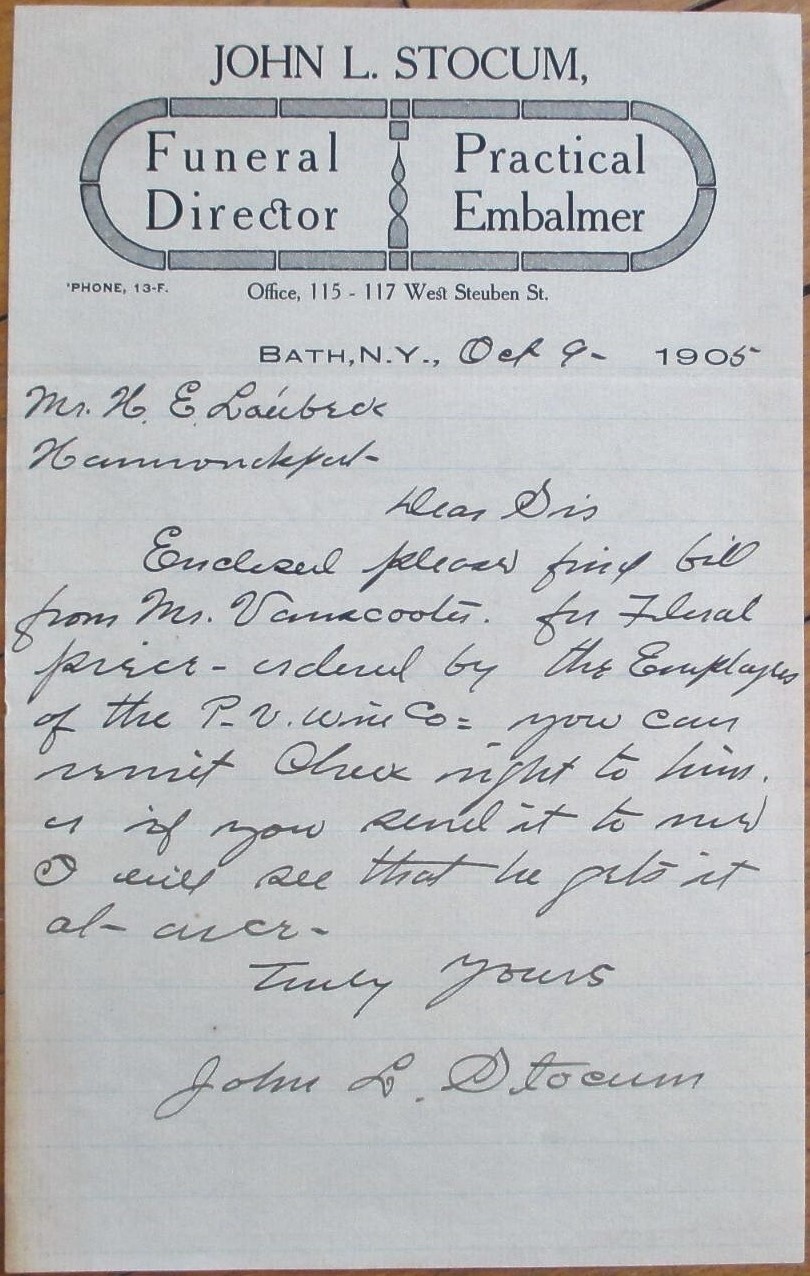 JOHN L. STOCUM,
Funeral Director
Practical Embalmer
'PHONE, 13-F.
Office, 115 - 117 West Steuben St.
BATH, N.Y., Oct 9- 1905-
Mr. H. E. Laubeck
Hammondsport-
Dear Sir
Enclosed please find bill
from Mr. Vanscooter. for Floral
piece - ordered by the Employes
of the P. V. Wine Co = you can
remit Check right to him.
or if you send it to me
I will see that he gets it
at- once -
Truly Yours
John L. Stocum